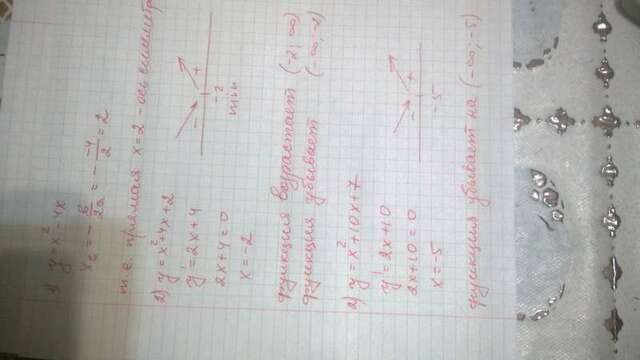 1) y = x² - 4x
x₀ = -b/2a = - -4/2 = 2
т.е. прямая x = 2 - ось симметр
2) y = x² + 4x + 2
y' = 2x + 4
2x + 4 = 0
x = -2
- +
-2
min
функция возрастает (-2; ∞)
функция убывает (-∞; -2)
2) y = x² + 10x + 7
y' = 2x + 10
2x + 10 = 0
x = -5
- +
-5
функция убывает на (-∞; -5)